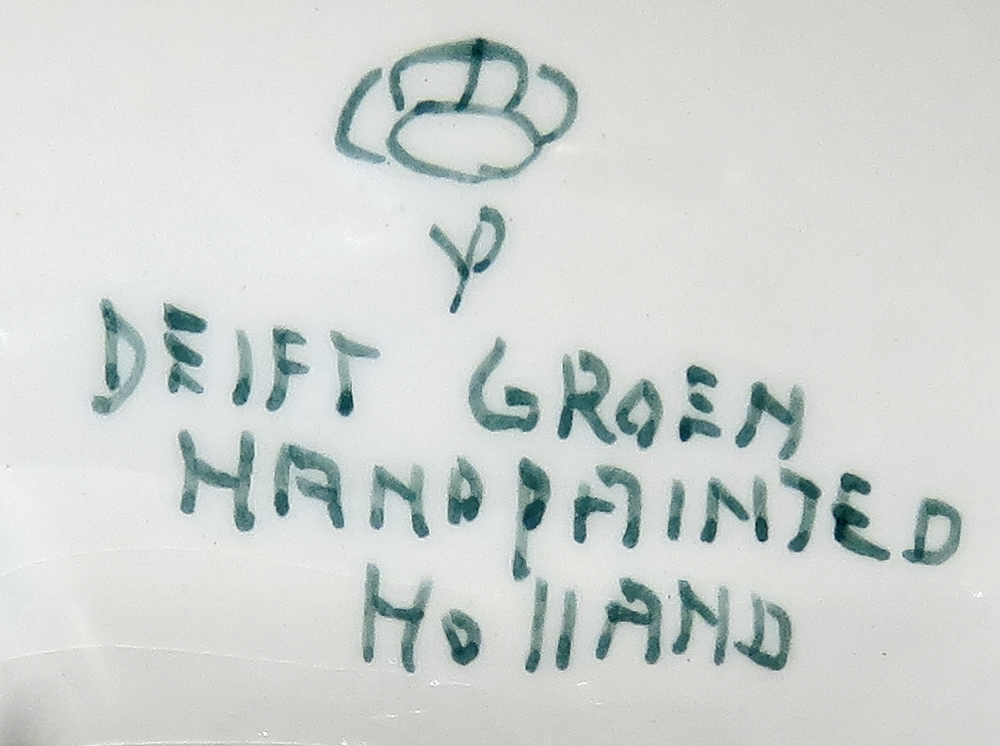 DElFT GROEN
HANDPAINTED
HollAND